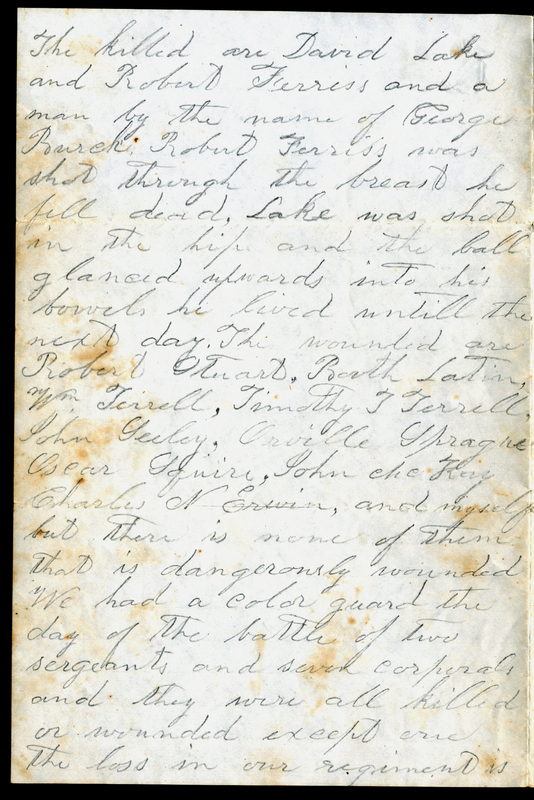 The killed are David Lake
and Robert Ferriss and a
man by the name of George
Burck. Robert Ferriss was
shot through the breast he
fell dead. Lake was shot
in the hip and the ball
glanced upwards into his
bowels he lived untill the
next day. The wounded are
Robert Stuart, Latin,
Wm Teirell, Timothy T Terrell,
John Seeley, Orville Sprague
Oscar Squire, John Mc Kay
Charles N Erwin, and myself
but there is none of them
that is dangerously wounded
We had a color guard the
day of the battle of two
sergeants and seven corporals
and they were all killed
or wounded except one
the loss in our regiment is